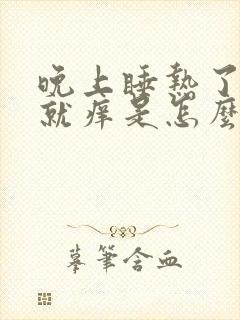 晚上睡熱了
就痒是怎麽
摹筆含血